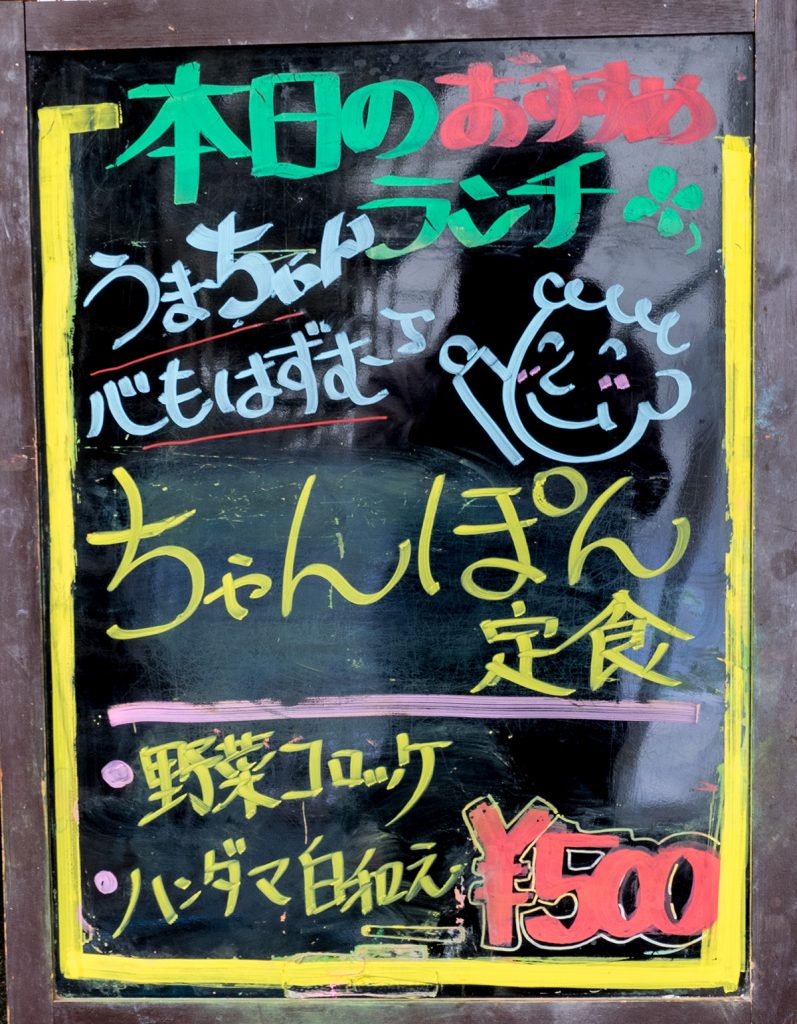 本日のおすすめ
ランチ
うまちゃん
心もはずむ♪
ちゃんぽん
定食
・野菜コロッケ
・ハンダマ白和え
¥500